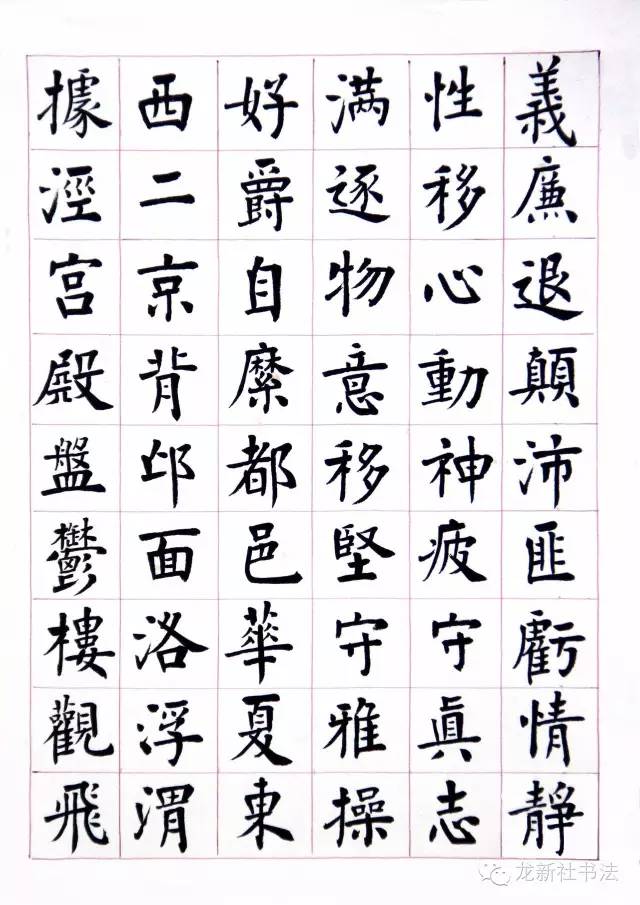 義廉退顛沛匪虧情靜
性移心動神疲守眞志
满逐物意移堅守雅操
好爵自縻都邑華夏東
西二京背邙面洛浮渭
據涇宫殿盤鬱樓觀飛
龙新社书法